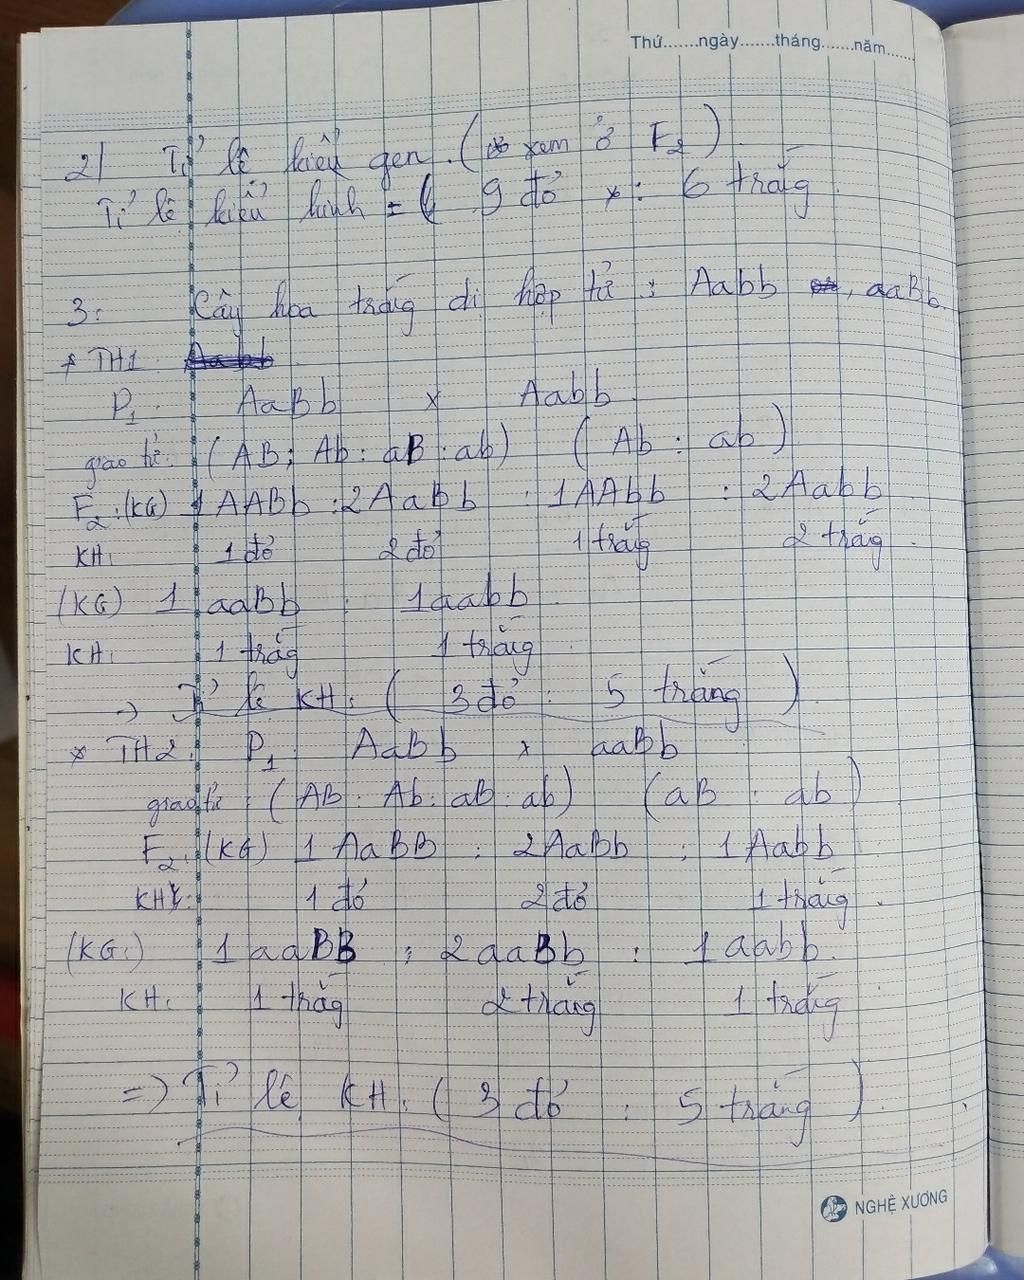 Thứ.......ngày.......tháng.......năm......
2) Tỉ lệ kiểu gen. ( xem ở F2)
Tỉ lệ kiểu hình = 9 đỏ : 6 trắg
3: Cây hoa trắng dị hợp tử : Aabb , aaBb
* TH1.
P1. AaBb x Aabb
giao tử: (AB; Ab : aB : ab) ( Ab : ab )
F2:(KG) 1 AABb : 2 AaBb : 1AAbb : 2Aabb
KH: 1 đỏ 2 đỏ 1 trắg 2 trắg .
(KG) 1 aaBb : 1aabb
KH: 1 trắg 1 trắng
=> Tỉ lệ KH: ( 3 đỏ : 5 trắng )
* TH2. P1. AaBb x aaBb
giao tử : (AB : Ab : aB : ab) (aB : ab)
F2: (KG) 1 AaBB : 2AaBb : 1 Aabb
KH: 1 đỏ 2 đỏ 1 trắng .
(KG:) 1 aaBB : 2 aaBb : 1 aabb.
KH: 1 trắg 2 trắng 1 trắng
=> Tỉ lệ KH: ( 3 đỏ : 5 trắng ).
NGHỆ XƯƠNG